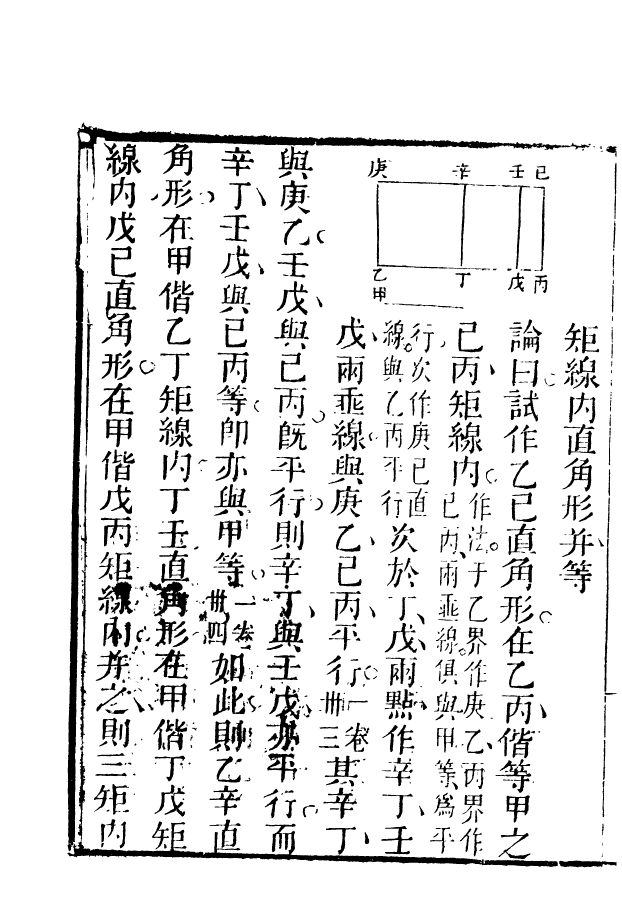 庚 辛 壬 己
乙 丁 戊 丙
甲
矩線内直角形并等
論曰試作乙己直角形在乙丙偕等甲之
己丙矩線内
作法于乙界作庚乙丙界作
己丙兩垂線俱與甲等為平
行次作庚己直
線與乙丙平行
次於丁戊兩點作辛丁壬
戊兩垂線與庚乙己丙平行
一卷
卅三
其辛丁
與庚乙壬戊與己丙既平行則辛丁與壬戊亦平行而
辛丁壬戊與己丙等即亦與甲等
一卷
卅四
如此則乙辛直
角形在甲偕乙丁矩線内丁壬直角形在甲偕丁戊矩
線内戊己直角形在甲偕戊丙矩線内并之則三矩内